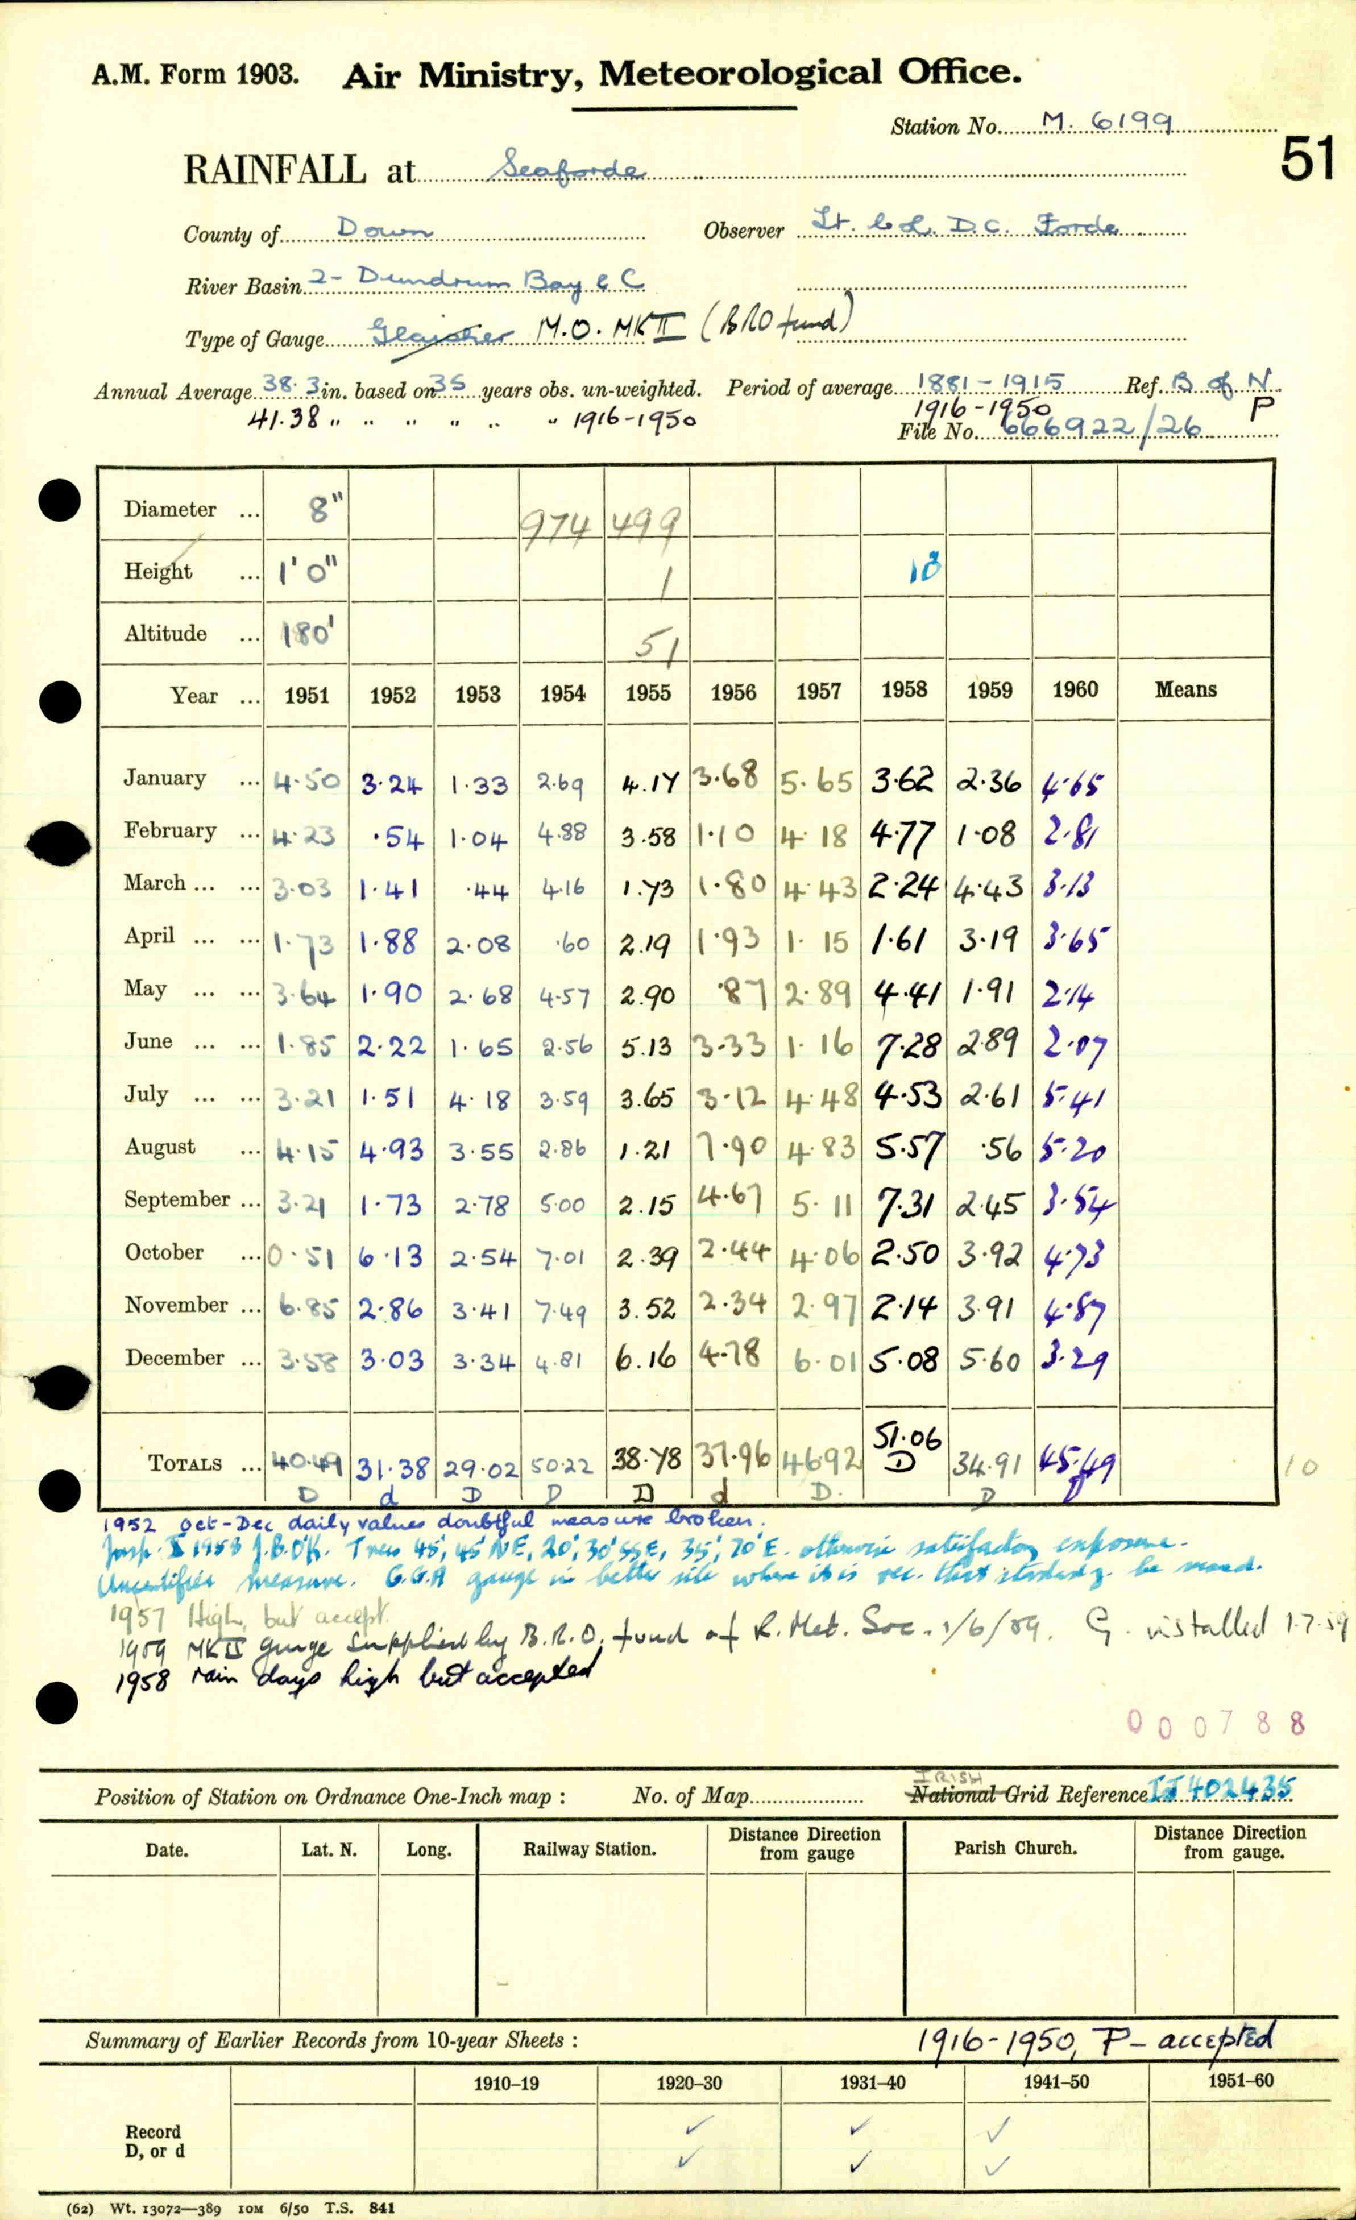 A.M. Form 1903. Air Ministry, Meteorological Office.
Station No. M. 6199
51
RAINFALL at Seaforde
County of Down Observer Lt. Col. D.C. Forde
River Basin 2- Dundrum Bay & C
Type of Gauge Glaisher M.O. MK II (BRO fund)
Annual Average 38.3 in. based on 35 years obs. un-weighted. Period of average 1881-1915 Ref. B of N
41.38 " " " " " " 1916-1950 1916-1950 P
File No. 666922/26
Diameter ... 8" 974 499
Height ... 1'0" 1 10
Altitude ... 180' 51
Year ... 1951 1952 1953 1954 1955 1956 1957 1958 1959 1960 Means
January ... 4.50 3.24 1.33 2.69 4.17 3.68 5.65 3.62 2.36 4.65
February ... 4.23 .54 1.04 4.88 3.58 1.10 4.18 4.77 1.08 2.81
March ... ... 3.03 1.41 .44 4.16 1.73 1.80 4.43 2.24 4.43 3.13
April ... ... 1.73 1.88 2.08 .60 2.19 1.93 1.15 1.61 3.19 3.65
May ... ... 3.64 1.90 2.68 4.57 2.90 .87 2.89 4.41 1.91 2.14
June ... ... 1.85 2.22 1.65 2.56 5.13 3.33 1.16 7.28 2.89 2.07
July ... ... 3.21 1.51 4.18 3.59 3.65 3.12 4.48 4.53 2.61 5.41
August ... 4.15 4.93 3.55 2.86 1.21 7.90 4.83 5.57 .56 5.20
September ... 3.21 1.73 2.78 5.00 2.15 4.67 5.11 7.31 2.45 3.54
October ... 0.51 6.13 2.54 7.01 2.39 2.44 4.06 2.50 3.92 4.73
November ... 6.85 2.86 3.41 7.49 3.52 2.34 2.97 2.14 3.91 4.87
December ... 3.58 3.03 3.34 4.81 6.16 4.78 6.01 5.08 5.60 3.29
TOTALS ... 40.49 31.38 29.02 50.22 38.78 37.96 46.92 51.06 34.91 45.49 10
D d D D D d D. D D D
1952 Oct-Dec daily values doubtful measure broken.
Insp. 1958 J.B.O'K. Trees 45', 45' NE, 20', 30' SSE, 35', 70' E. otherwise satisfactory exposure.
Uncertified measure. G.G.A gauge in better site where it is rec. that standard g. be moved.
1957 High, but accept.
1959 MK II gauge supplied by B.R.O. fund of R. Met. Soc. 1/6/59. G. installed 1.7.59
1958 rain days high but accepted
000788
IRISH
Position of Station on Ordnance One-Inch map : No. of Map National Grid Reference IJ 402435
Date. Lat. N. Long. Railway Station. Distance Direction from gauge Parish Church. Distance Direction from gauge.
Summary of Earlier Records from 10-year Sheets : 1916-1950, P- accepted
1910-19 1920-30 1931-40 1941-50 1951-60
Record ✓ ✓ ✓
D, or d ✓ ✓ ✓
(62) Wt. 13072—389 10M 6/50 T.S. 841